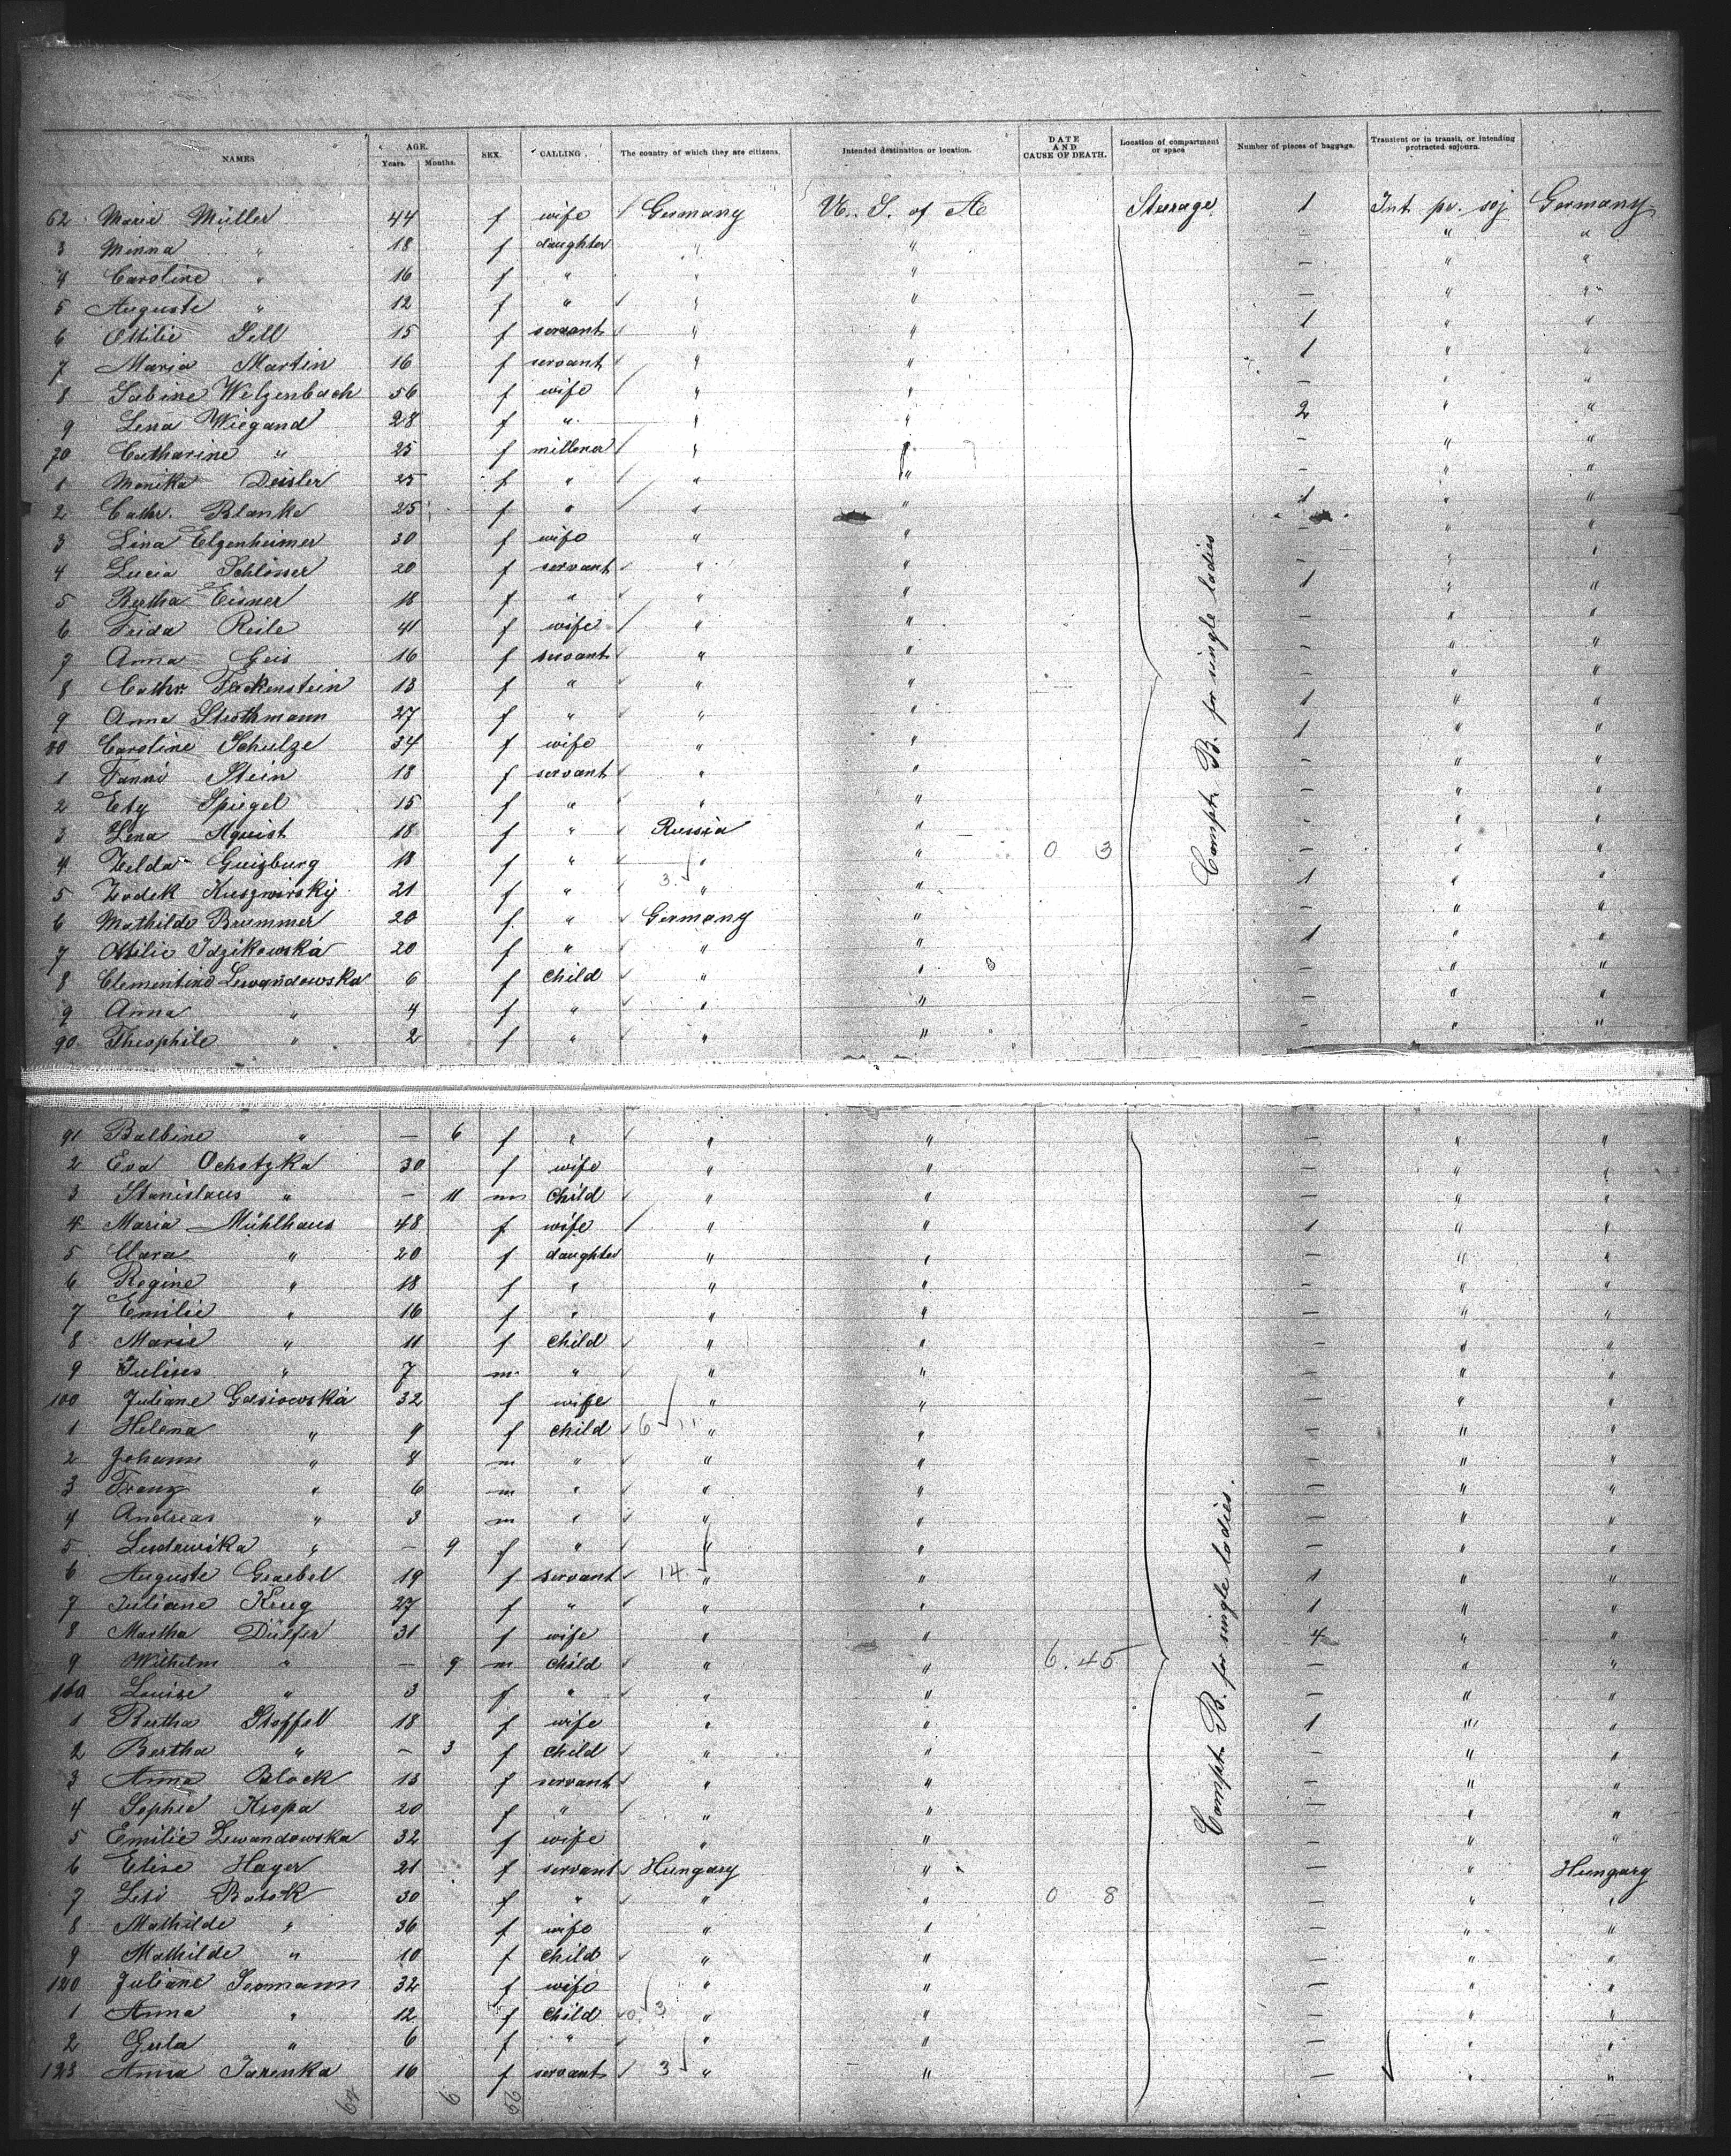 NAMES AGE. Years. Months. SEX. CALLING. The country of which they are citizens. Intended destination or location. DATE AND CAUSE OF DEATH. Location of compartment or space Number of pieces of baggage. Transient or in transit, or intending protracted sojourn.
62 Marie Müller 44 f wife Germany U. S. of A Steerage 1 Int. pr. soj Germany
3 Minna " 18 f daughter " " — " "
4 Caroline " 16 f " " " — " "
5 Auguste " 12 f " " " — " "
6 Ottilie Sell 15 f servant " " 1 " "
7 Maria Martin 16 f servant " " 1 " "
8 Sabine Welzenbach 56 f wife " " — " "
9 Lena Wiegand 28 f " " " 2 " "
70 Catharine " 25 f " " — " "
1 Monika Deisler 25 f " " " — " "
2 Cathr. Blanke 25 f " " " 1 " "
3 Lina Elgenheimer 30 f wife " " — " "
4 Lucia Schlösser 20 f servant " " — " "
5 Bertha Eisner 18 f " " " 1 " "
6 Frida Reile 41 f wife " " — " "
7 Anna Geis 16 f servant " " — " "
8 Cathr. Fackenstein 13 f " " " — " "
9 Anna Strothmann 27 f " " " 1 " "
80 Caroline Schulze 34 f wife " " 1 " "
1 Fanni Stein 18 f servant " " — " "
2 Ety Spiegel 15 f " " " — " "
3 Lena Aquist 18 f " Russia " — " "
4 Zelda Guizburg 18 f " " " 0 3 — " "
5 Zodek 21 f " 3 " " 1 " "
6 Mathilde Brummer 20 f " Germany " — " "
7 Ottilie Idzikowska 20 f " " " 1 " "
8 Clementine Lewandowska 6 f child " " — " "
9 Anna " 4 f " " " — " "
90 Theophile " 2 f " " " — " "
Compt. B. for single ladies
91 Balbine " — 6 f " " " — " "
2 Eva Ochotzka 30 f wife " " — " "
3 Stanislaus " — 11 m child " " — " "
4 Maria Mühlhaus 48 f wife " " 1 " "
5 Clara " 20 f daughter " " — " "
6 Regine " 18 f " " " — " "
7 Emilie " 16 f " " " — " "
8 Marie " 11 f child " " — " "
9 Julius " 7 m " " " — " "
100 Juliane Gasiowska 32 f wife " " — " "
1 Helena " 9 f child 6 " " — " "
2 Johann " 8 m " " " — " "
3 Franz " 6 m " " " — " "
4 Andreas " 3 m " " " — " "
5 Ludowika " — 9 f " " " — " "
6 Auguste Graebel 19 f servant 14 " " 1 " "
7 Juliane Krug 27 f " " " 1 " "
8 Martha Dülfer 31 f wife " " 4 " "
9 Wilhelm " — 9 m child " " 6.45 — " "
110 Louise " 3 f " " " — " "
1 Bertha Stoffel 18 f wife " " 1 " "
2 Bertha " — 3 f child " " — " "
3 Anna Block 13 f servant " " — " "
4 Sophie Kropa 20 f " " " — " "
5 Emilie Lewandowska 32 f wife " " — " "
6 Elise Hayer 21 f servant Hungary " — " Hungary
7 30 f " " " 0 8 — " "
8 Mathilde " 36 f wife " " — " "
9 Mathilde " 10 f child " " — " "
120 Juliane 32 f wife " " — " "
1 Anna " 12 f child 3 " " — " "
2 Gula " 6 f " " " — " "
123 Anna Jarenka 16 f servant 3 " " — " "
Compt. B. for single ladies.